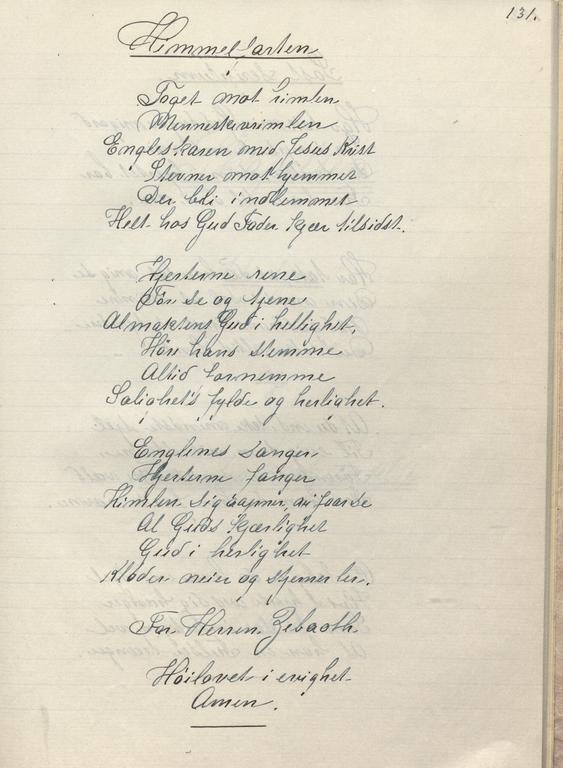 131.
Himmelfarten
Toget mot himlen
Menneskevrimlen
Engleskaren med Jesus Krist
Stevner mot hjemmet
Der bli indlemmet
Helt hos Gud Fader kjær tilsidst.
Hjerterne rene
Før se og tjene
Almaktens Gud i hellighet,
Høre hans stemme
Altid fornemme
Salighets fylde og herlighet.
Englenes sanger
Hjerterne fanger
Himlen sig aapner, vi faar se
Al Guds kjærlighet
Gud i herlighet
Kloder neier og
For Herren Zebaoth
Høilovet i evighet
Amen.